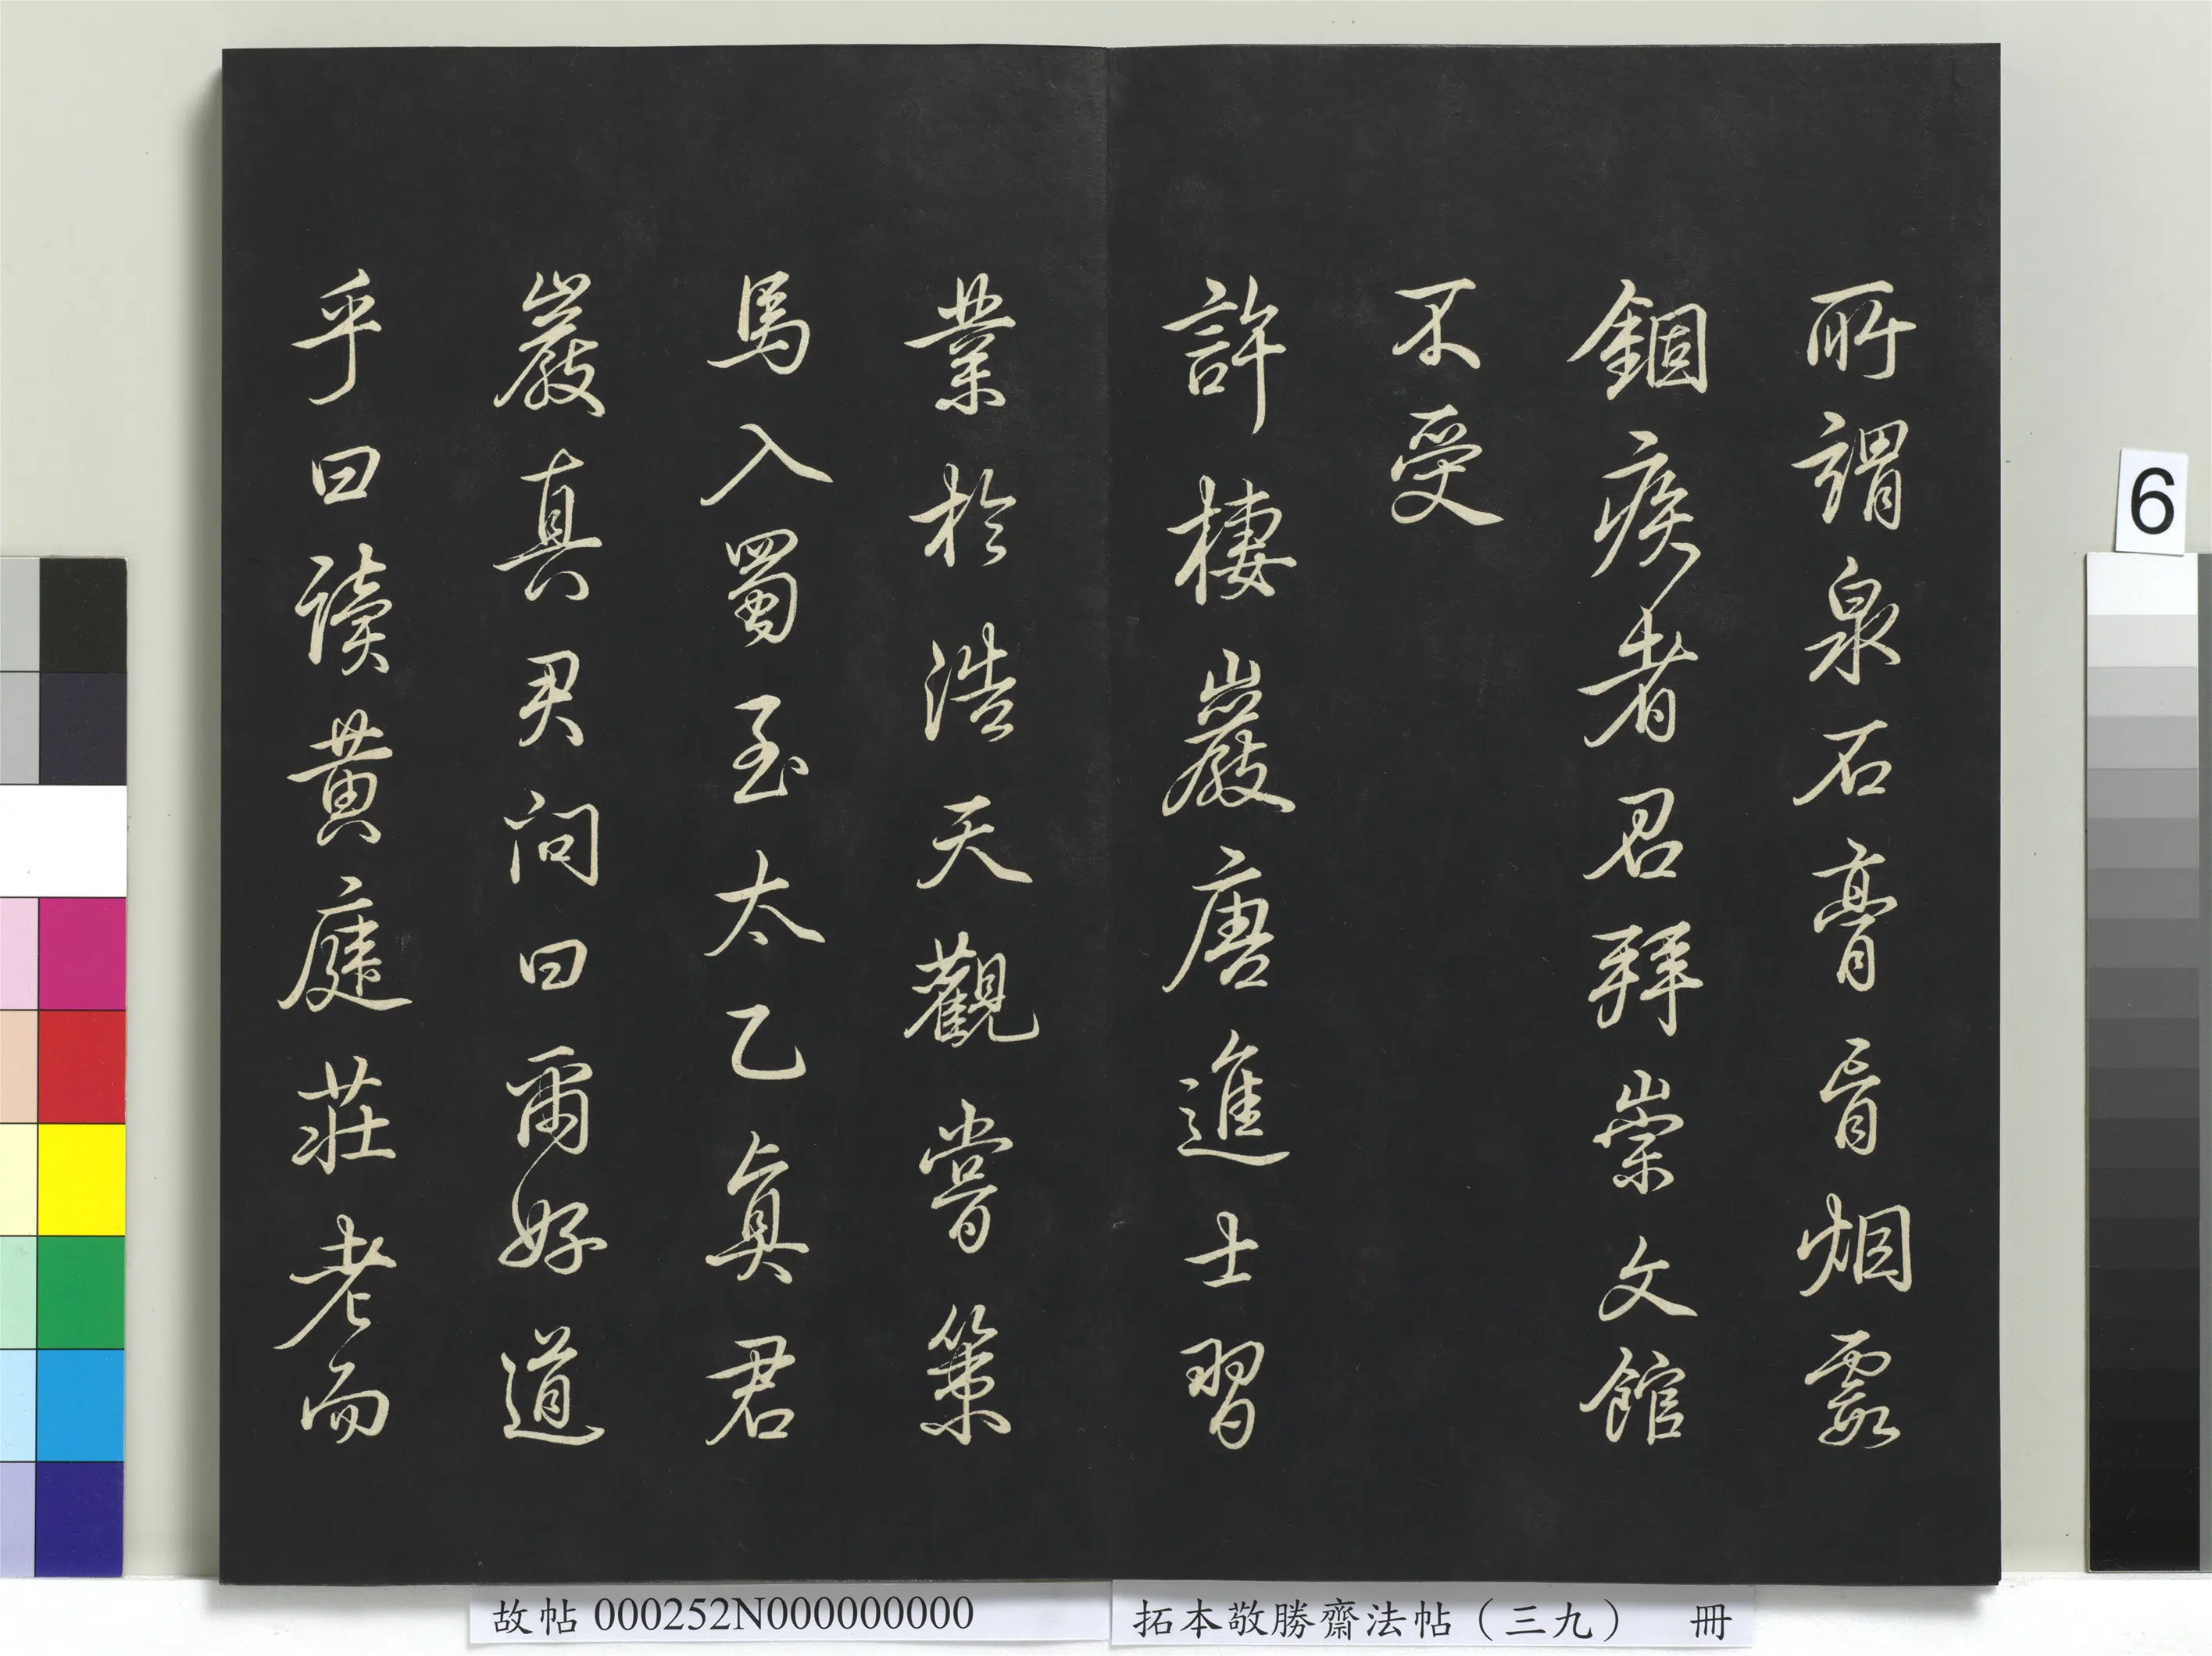 所謂泉石膏肓烟霞
錮疾者召拜崇文館
不受
許棲巖唐進士習
業於浩天觀嘗策
馬入蜀至太乙真君
巖真君問曰爾好道
乎曰讀黃庭莊老而
故帖 000252N000000000
拓本敬勝齋法帖（三九） 冊
6